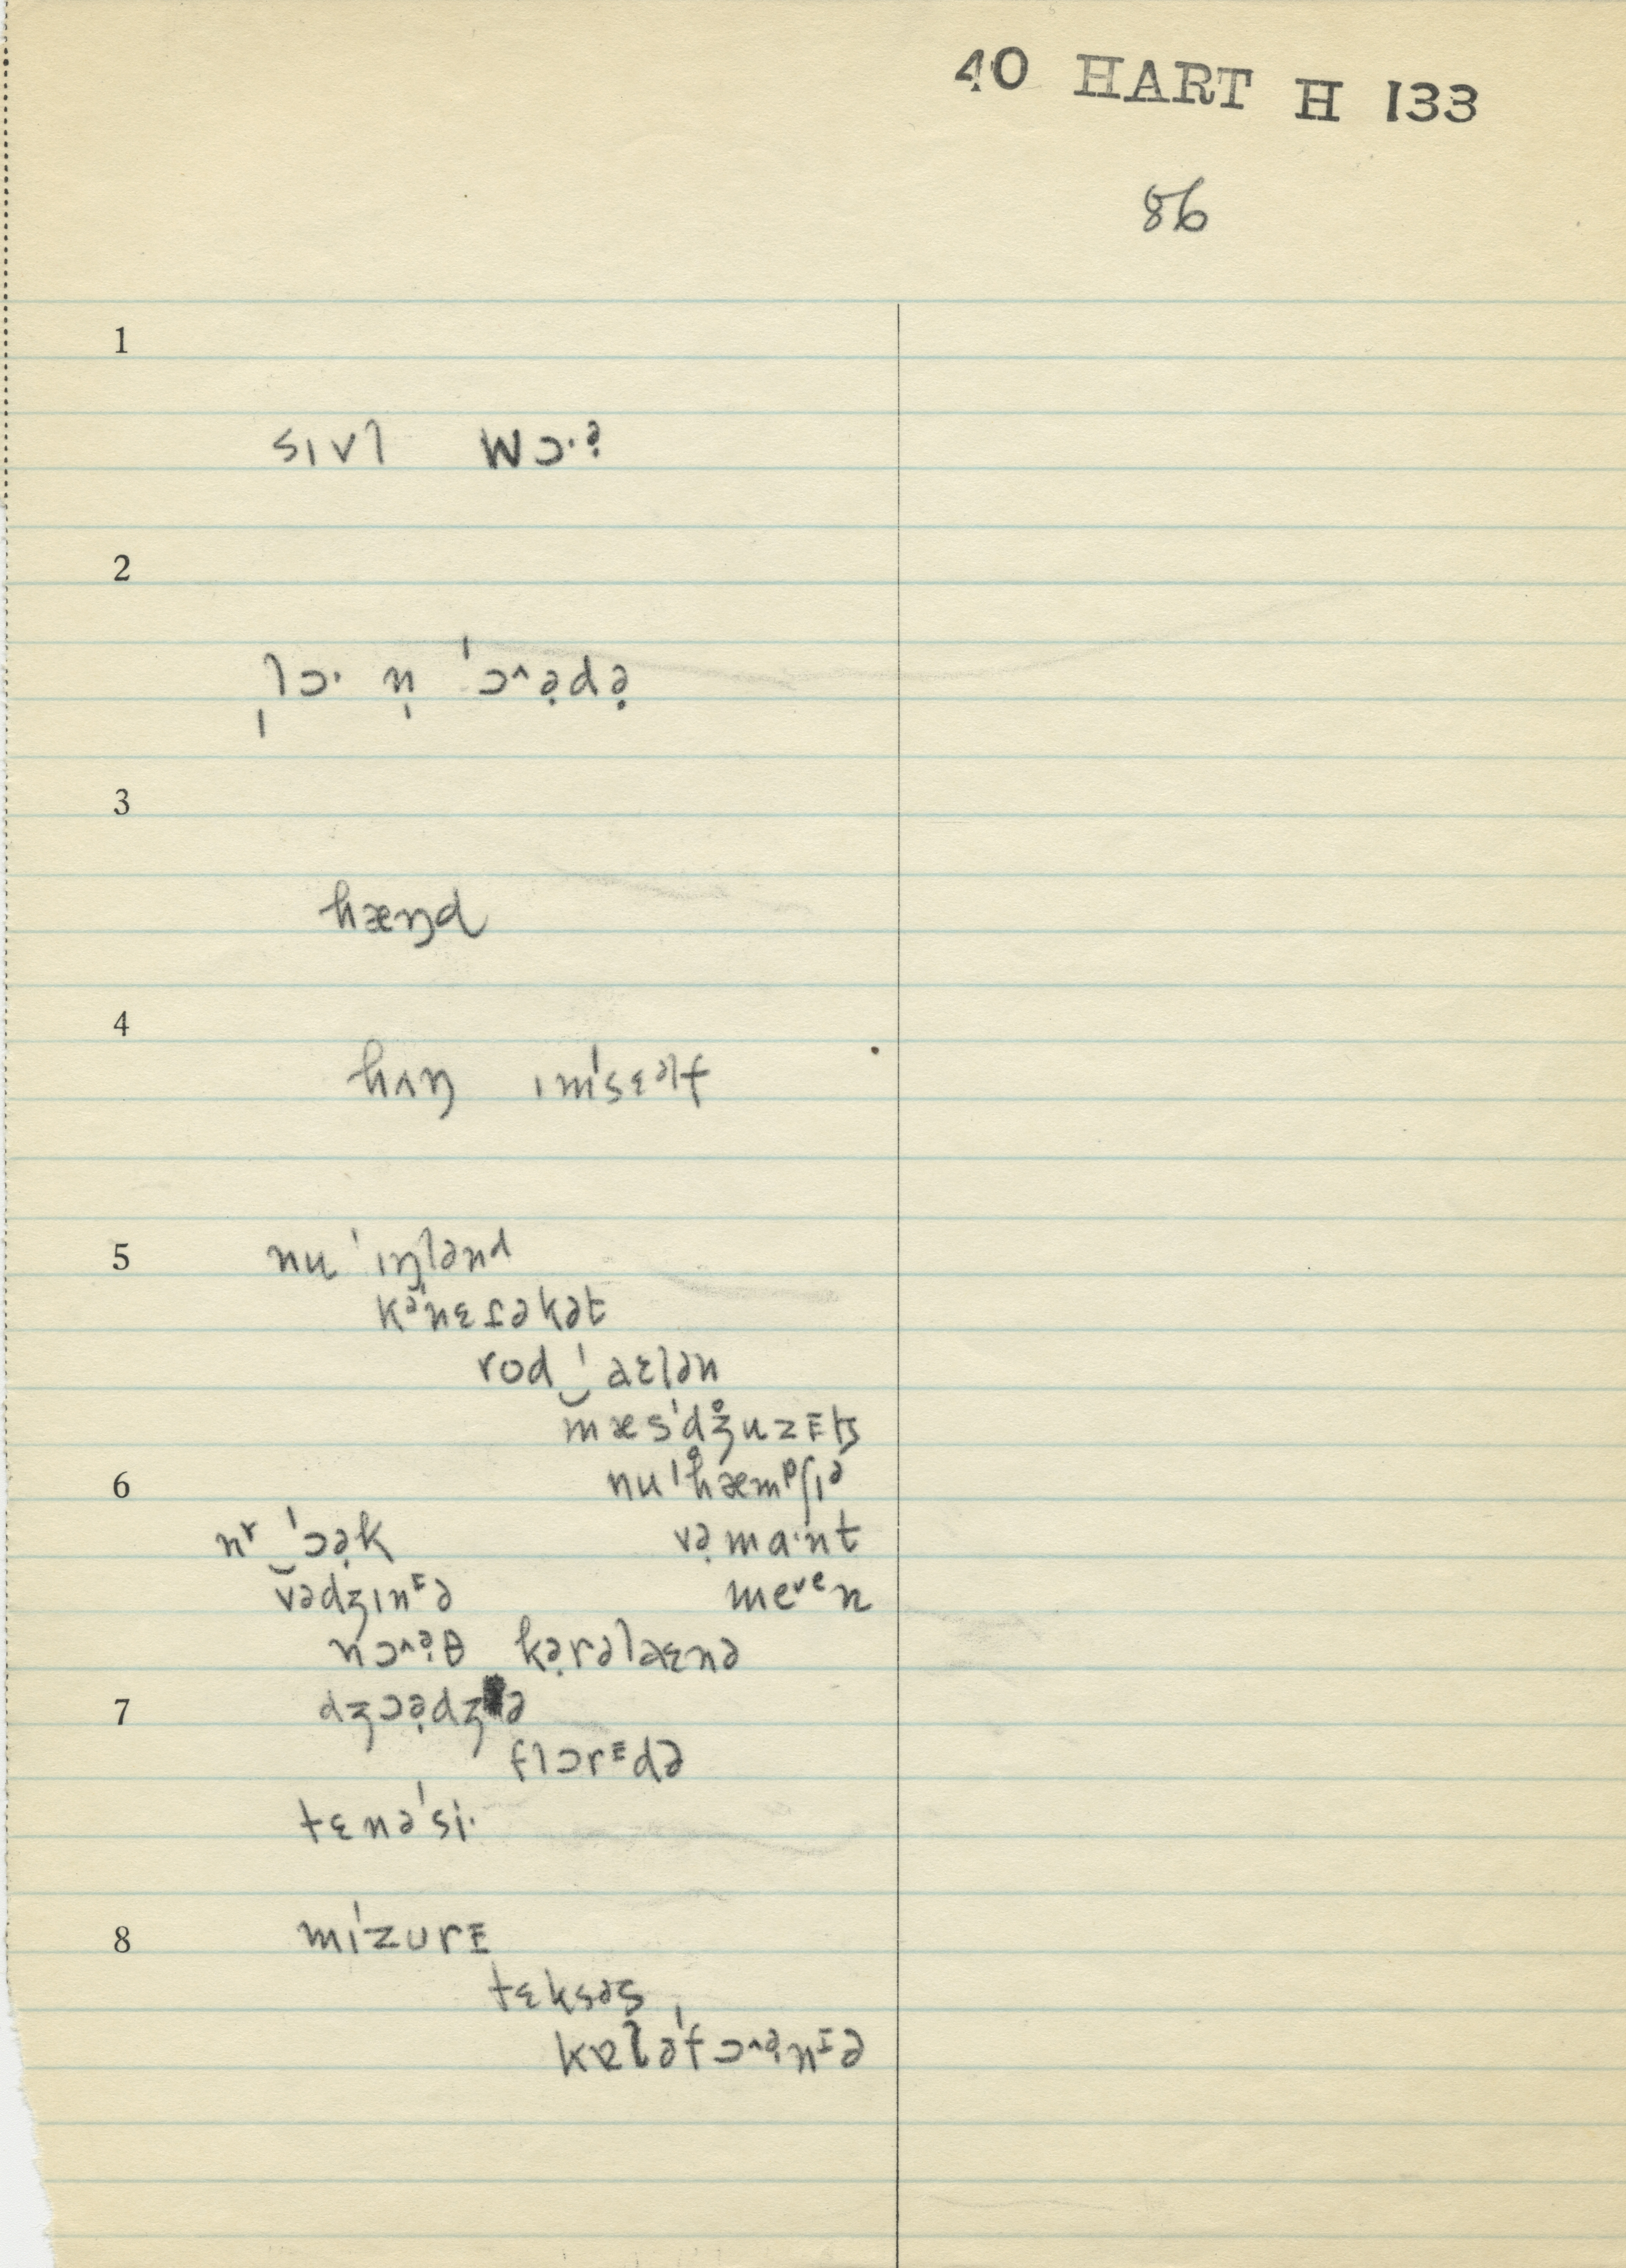 40 HART H 133
86
1
sɪvl wɔ·ə̣
2
l̩ɔ· n̩ ˈɔ^ə̣də̣
3
hæŋd
4
hʌŋ ɪmˈsɛəlf
5 nu ˈɪŋlənd
kəˈnɛɾəkət
rod‿ˈaɛlən
mæsˈdʒ̊uzᴇts
6 nuˈh̊æmᵖʃɪə
nʳ‿ˈɔə̣k və̣ma·nt
vədʒɪnᴇə meᵛᵉn
nɔ^ə̣θ kə̣rəlaɛnə
7 dʒɔə̣dʒə
flɔrᴇdə
tɛnəˈsi·
8 mɪˈzurᴇ
tɛksəs
kælə'fɔ^ə̣nɪə